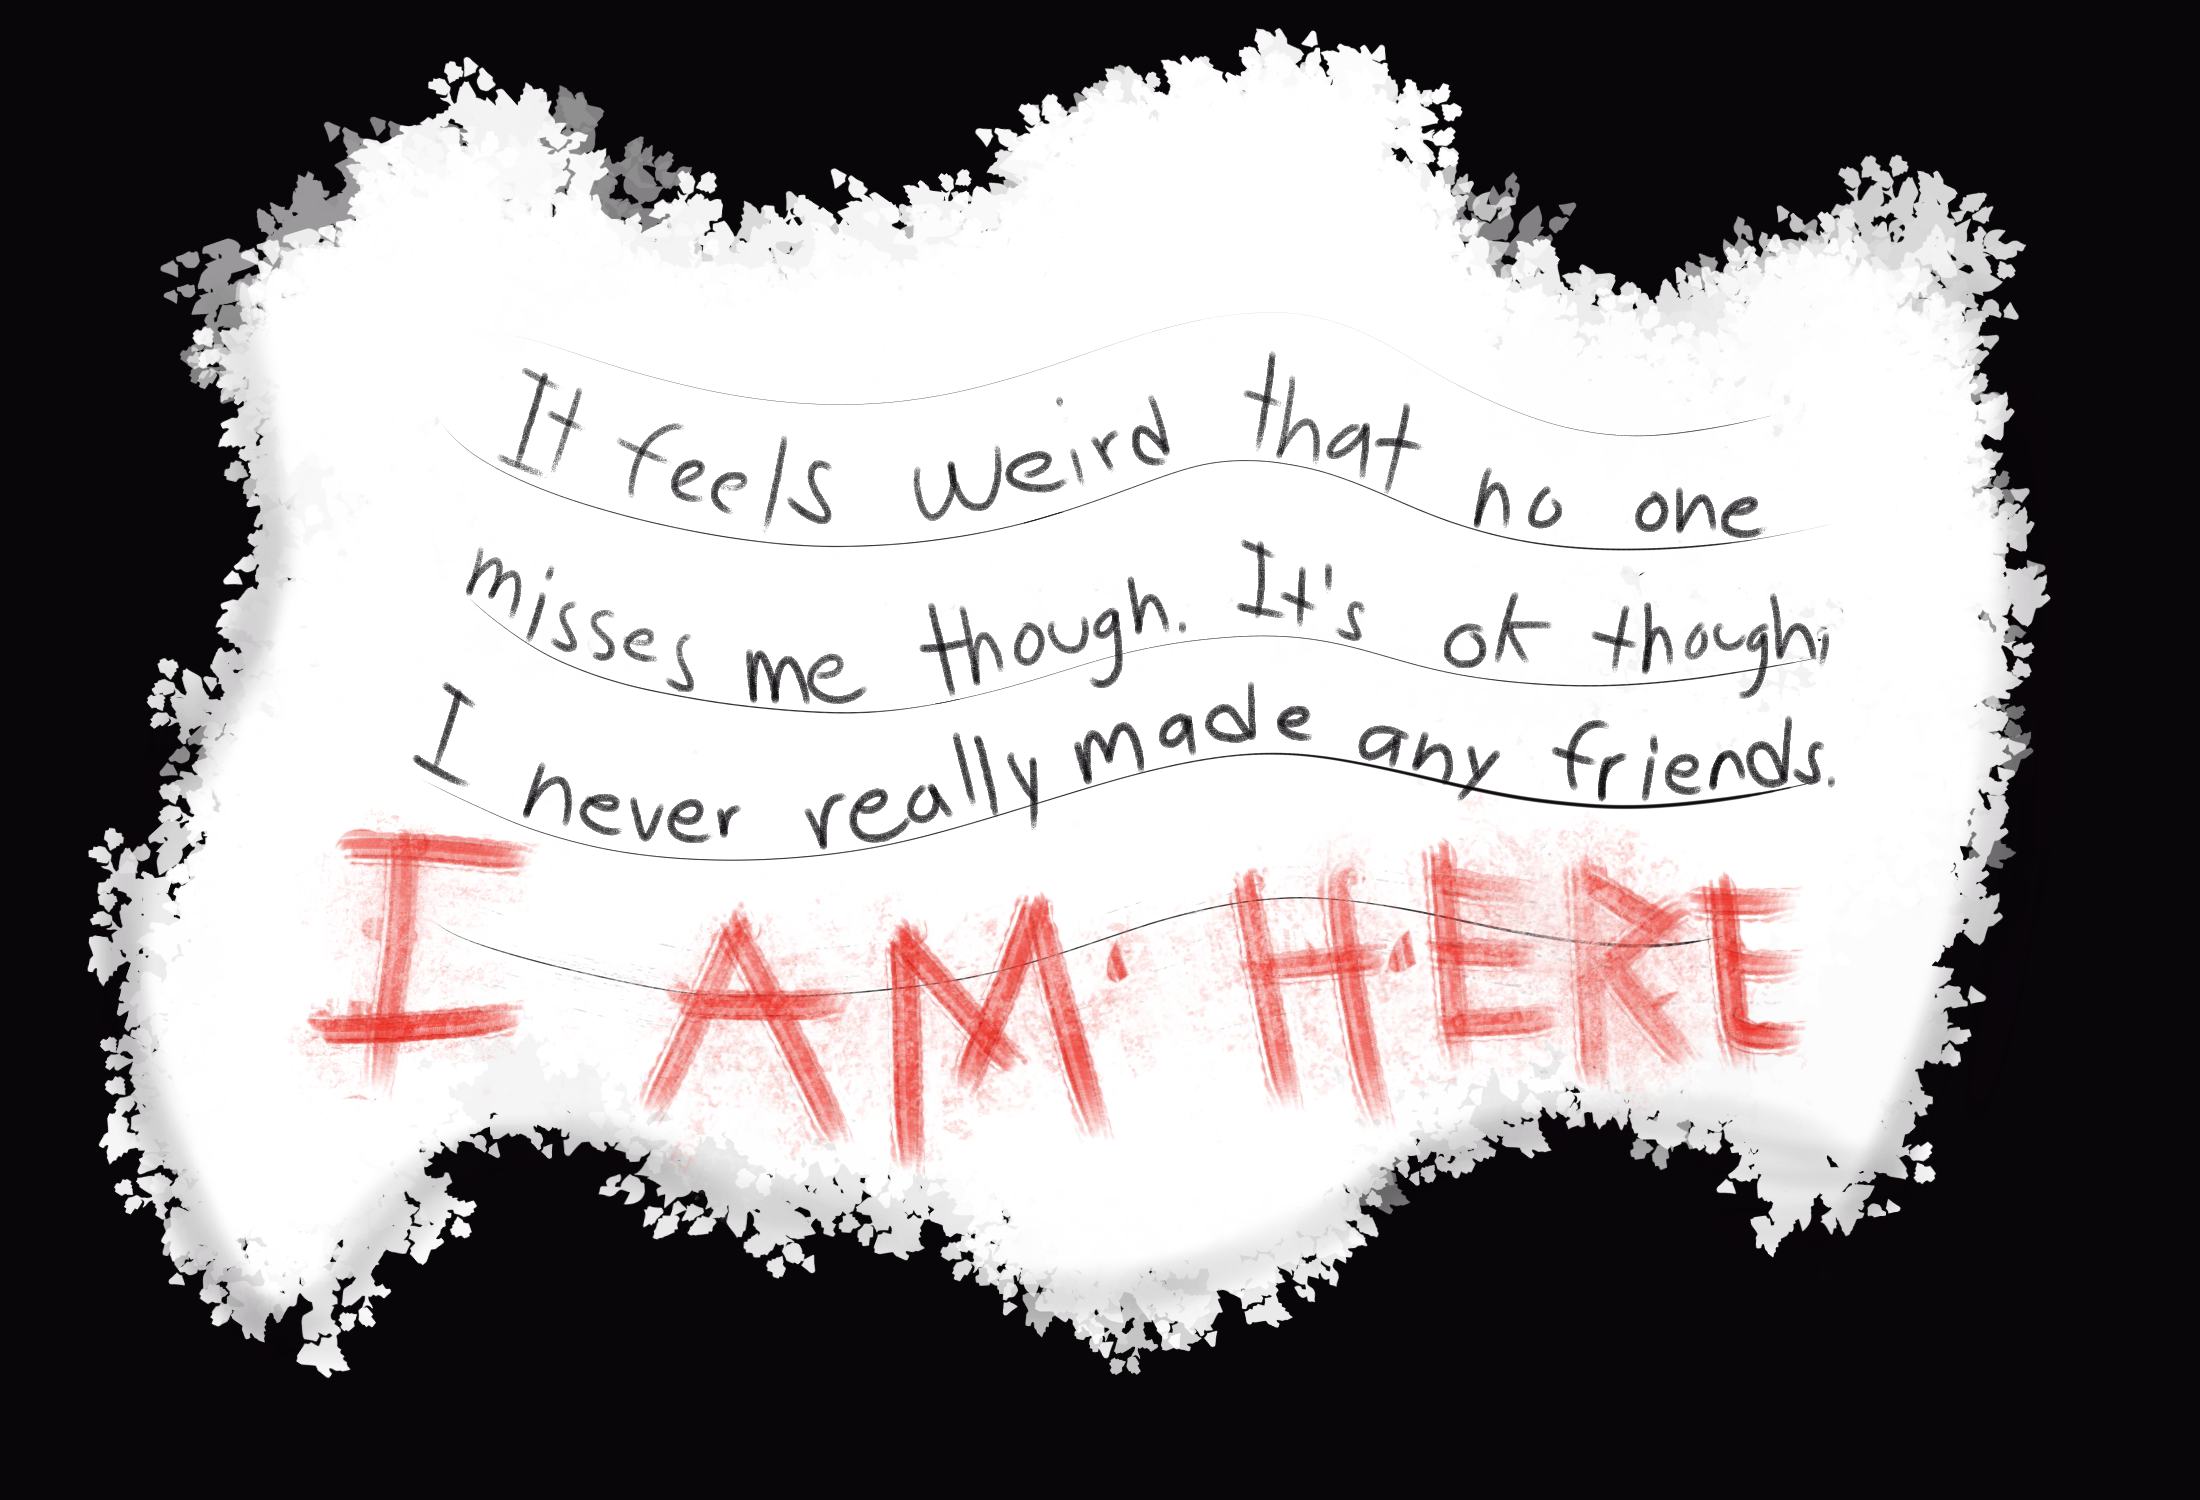 It feels weird that no one
misses me though. It's ok though;
I never really made any friends.
I AM HERE